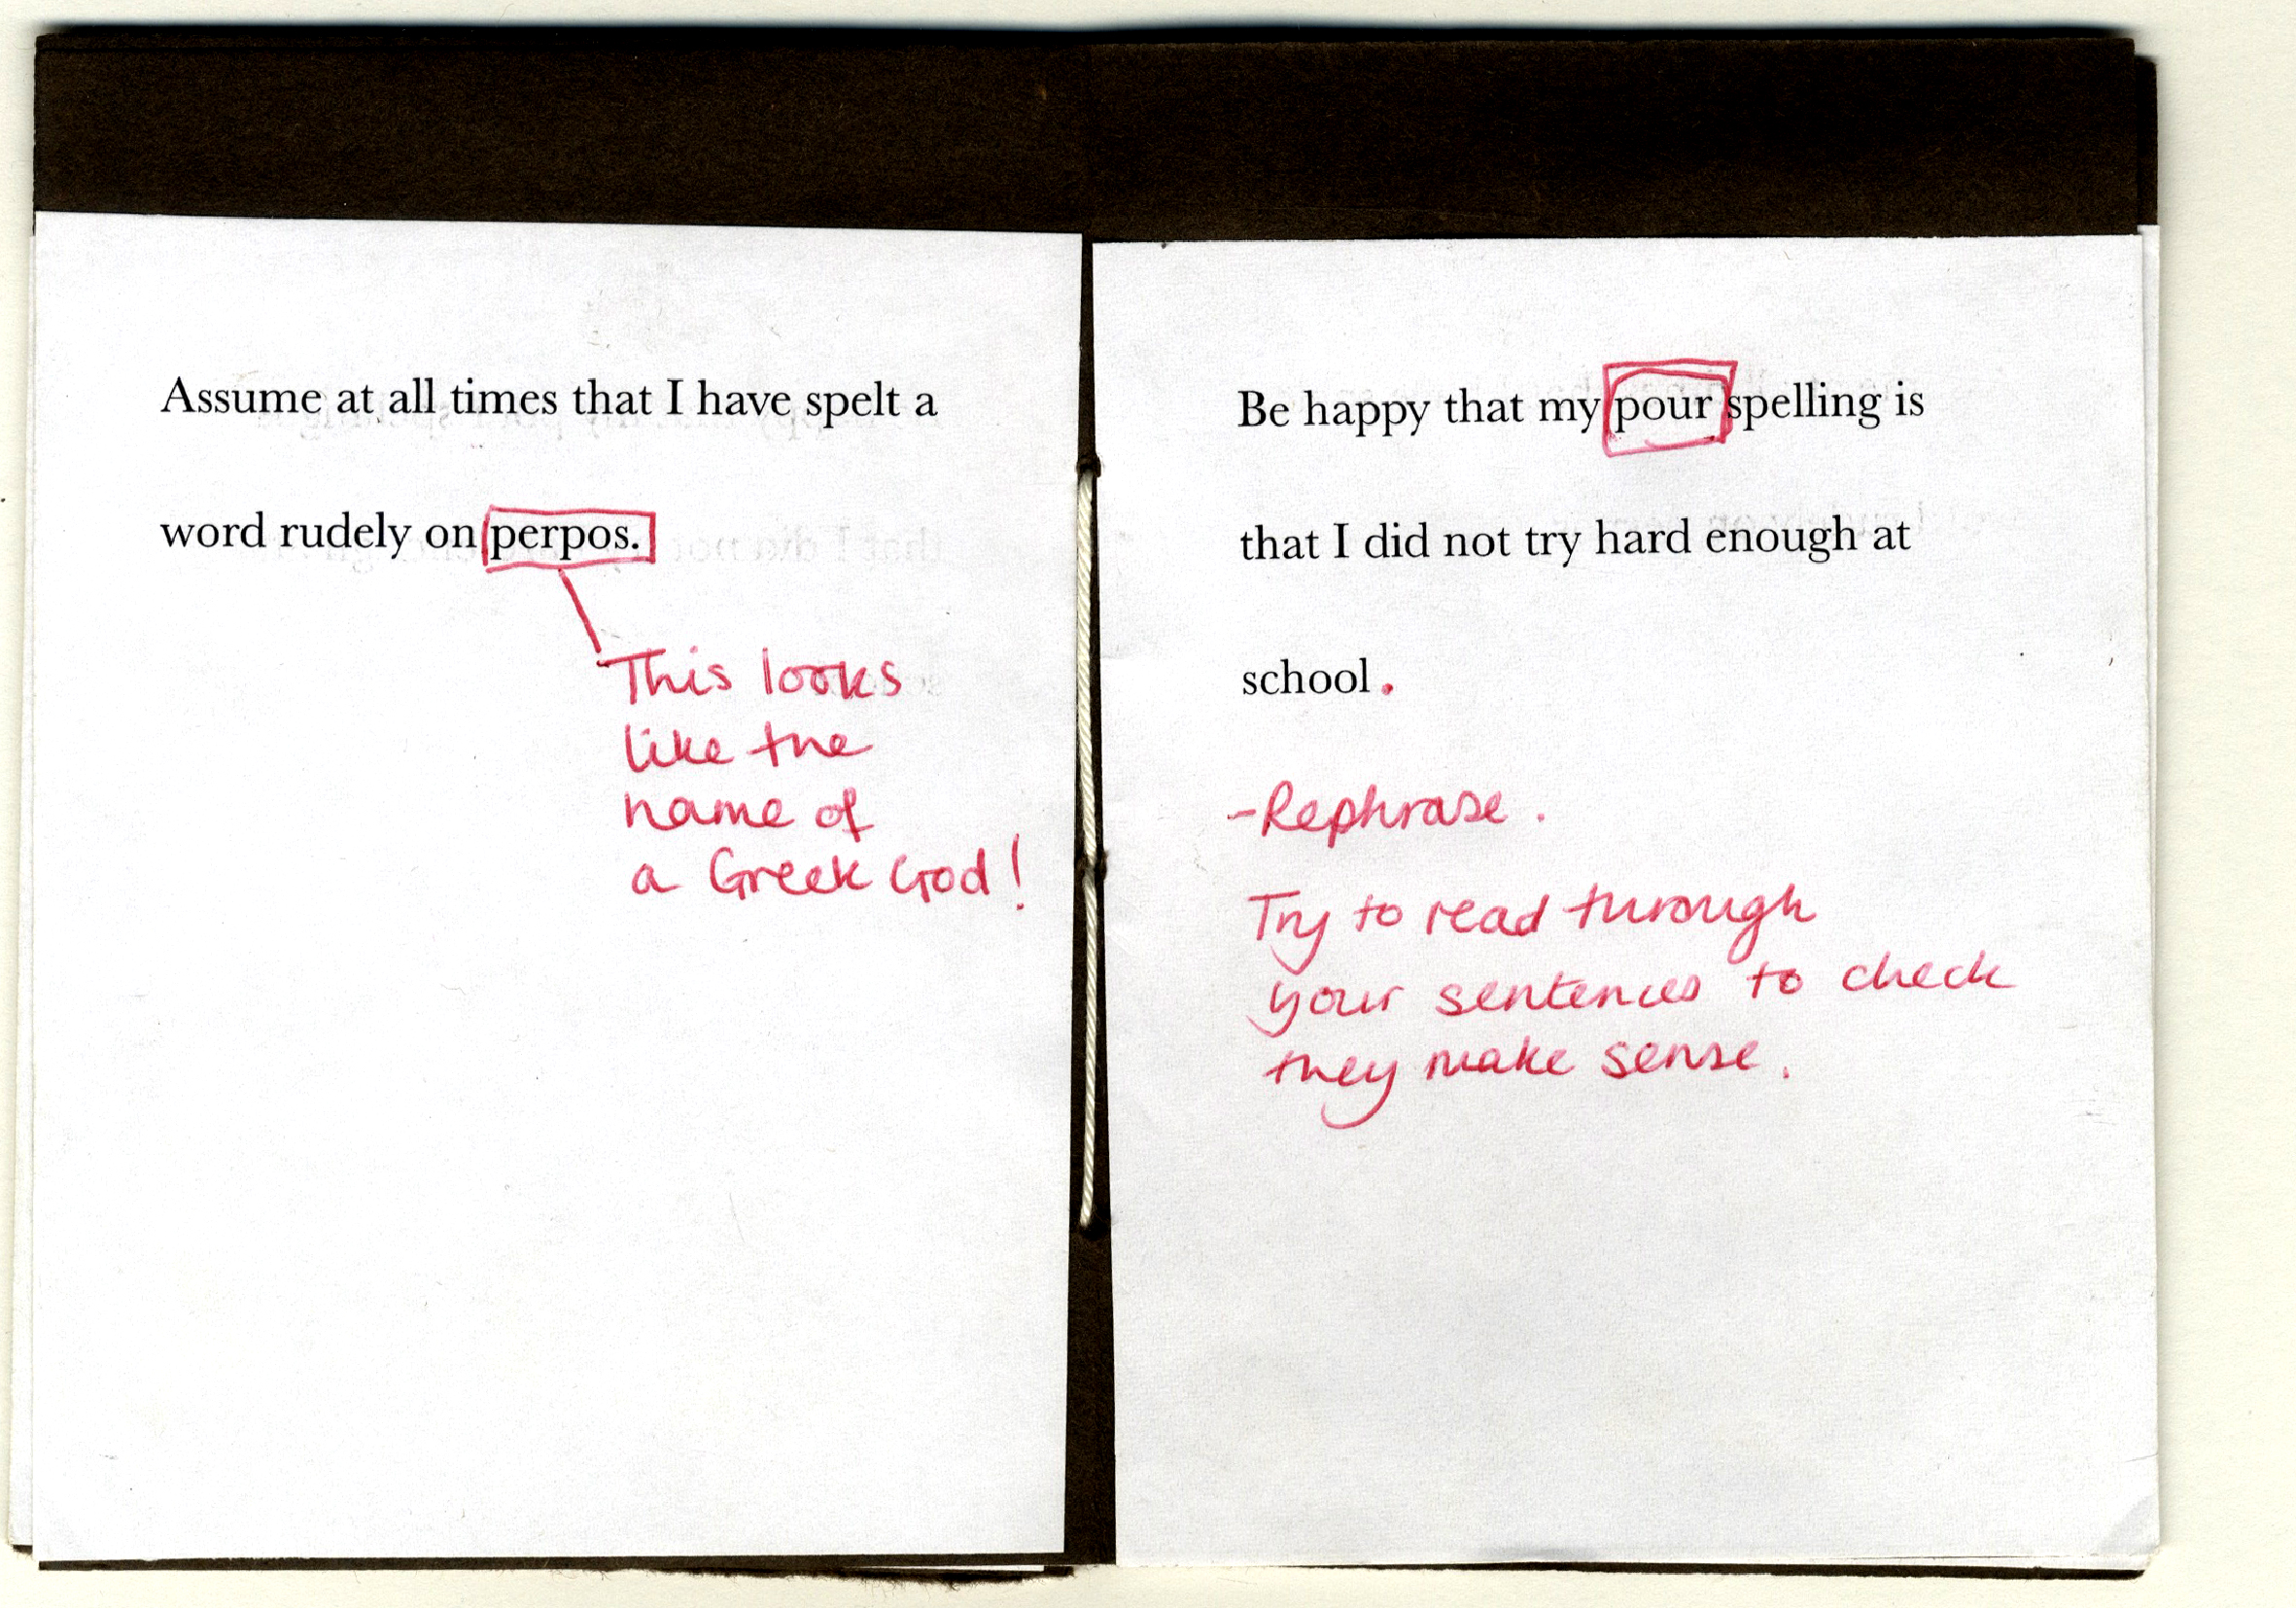 Assume at all times that I have spelt a
word rudely on perpos.
This looks
like the
name of
a Greek God!
Be happy that my pour spelling is
that I did not try hard enough at
school.
-Rephrase.
Try to read through
your sentences to check
they make sense.